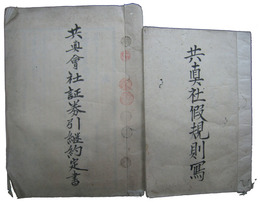 共真社假規則寫
共真會社証券引継約定書